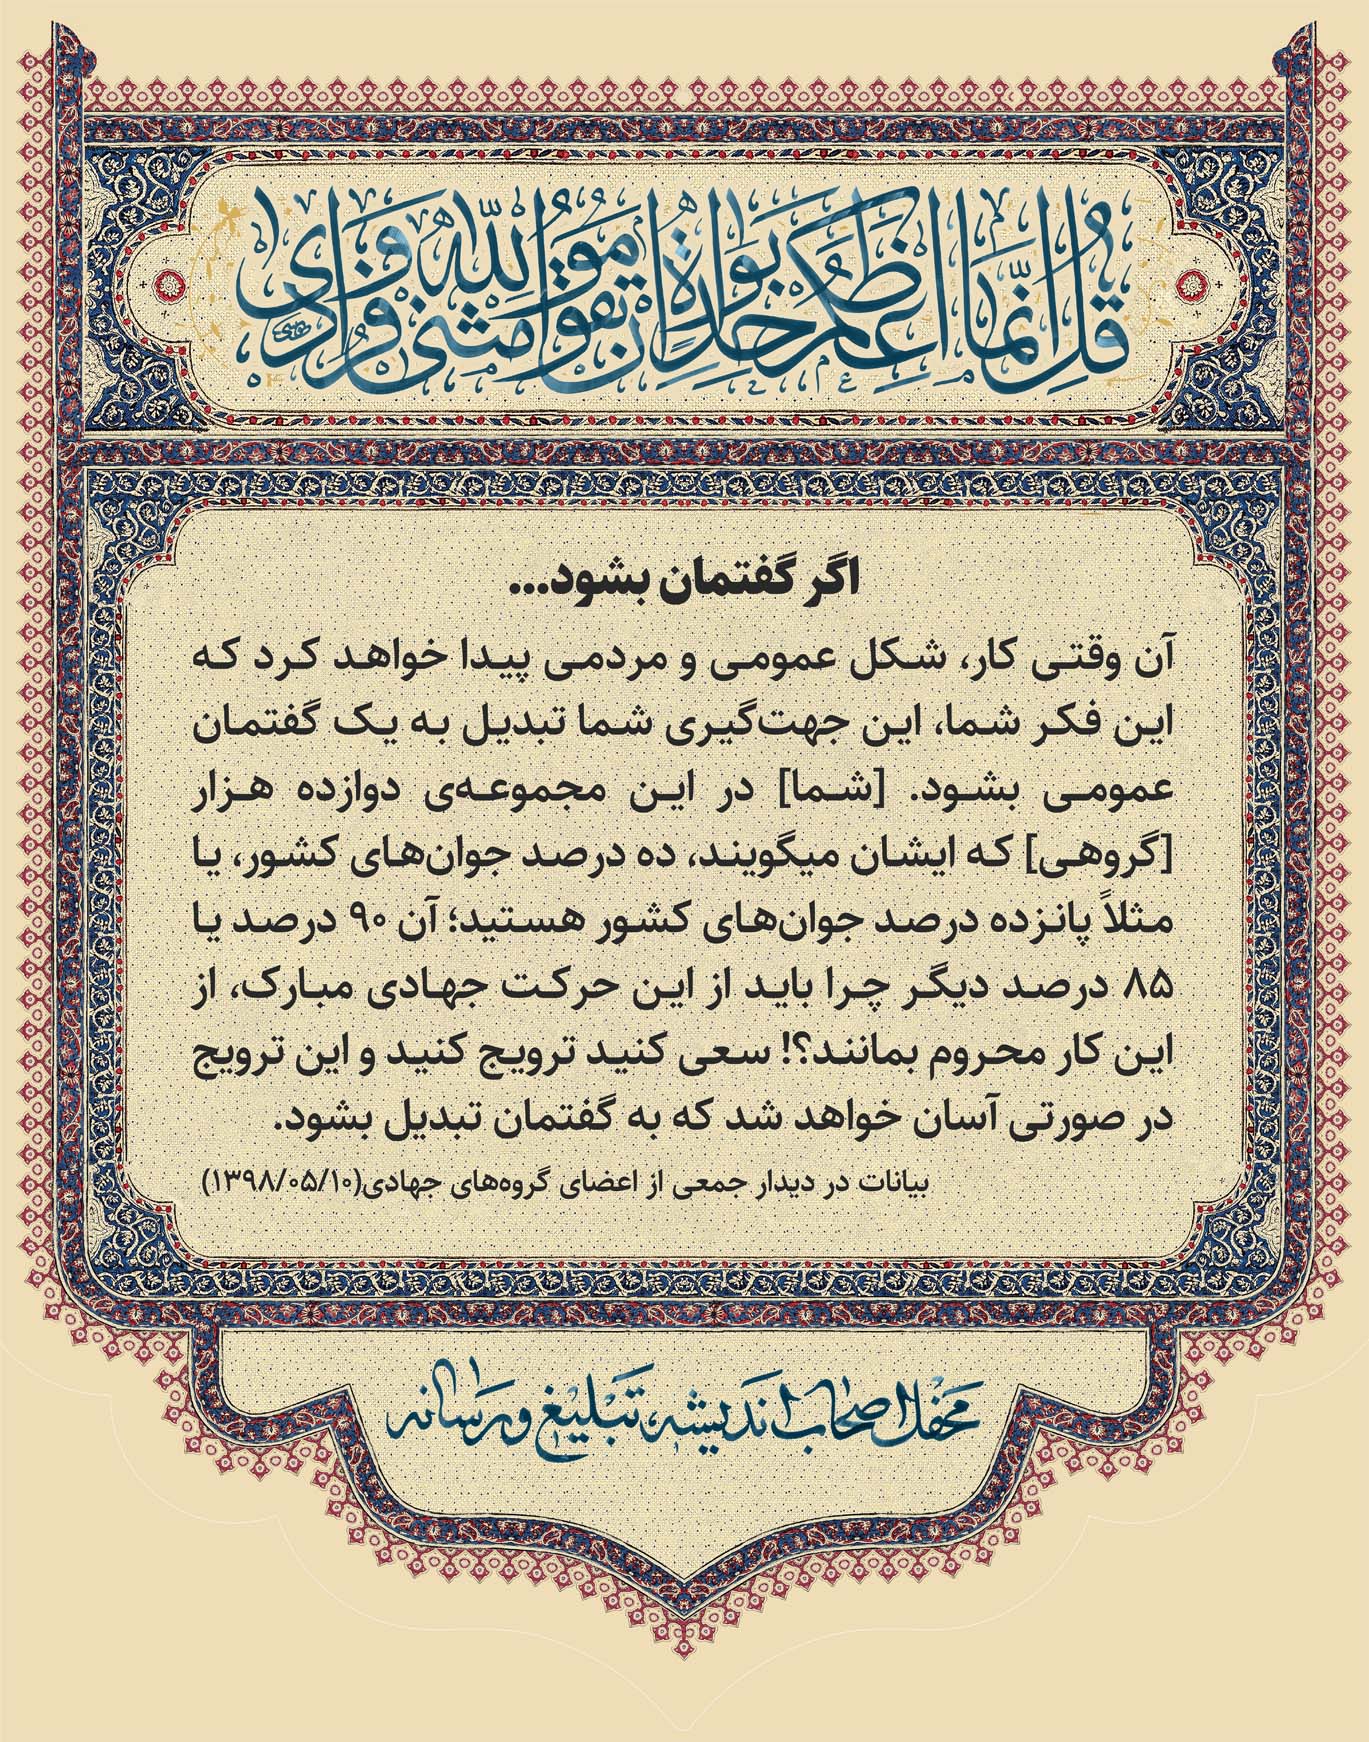 قُل اِنَّما اَعِظُکُم بِواحِدَةٍ اَن تَقوموا لِلّهِ مَثنیٰ وَفُرادیٰ
اگر گفتمان بشود...
آن وقتی کار، شکل عمومی و مردمی پیدا خواهد کرد که
این فکر شما، این جهت‌گیری شما تبدیل به یک گفتمان
عمومی بشود. [شما] در این مجموعه‌ی دوازده هزار
[گروهی] که ایشان میگویند، ده درصد جوان‌های کشور، یا
مثلاً پانزده درصد جوان‌های کشور هستید؛ آن ۹۰ درصد یا
۸۵ درصد دیگر چرا باید از این حرکت جهادی مبارک، از
این کار محروم بمانند؟! سعی کنید ترویج کنید و این ترویج
در صورتی آسان خواهد شد که به گفتمان تبدیل بشود.
بیانات در دیدار جمعی از اعضای گروه‌های جهادی(۱۳۹۸/۰۵/۱۰)
محفل اصحاب اندیشه، تبلیغ و رسانه